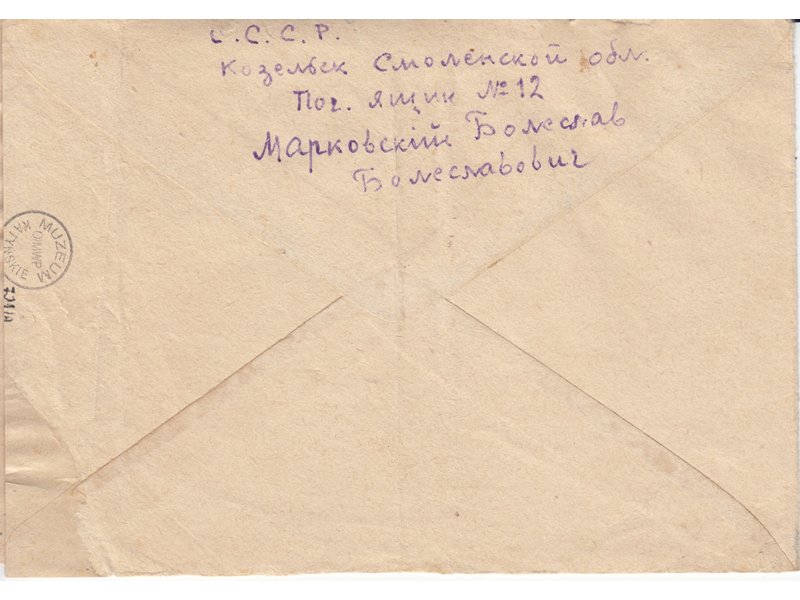 С.С.С.Р.
Козельск Смоленской обл.
Поч. ящик № 12
Марковскiй Болеслав
Болеславович
MUZEUM
KATYŃSKIE
OMWP